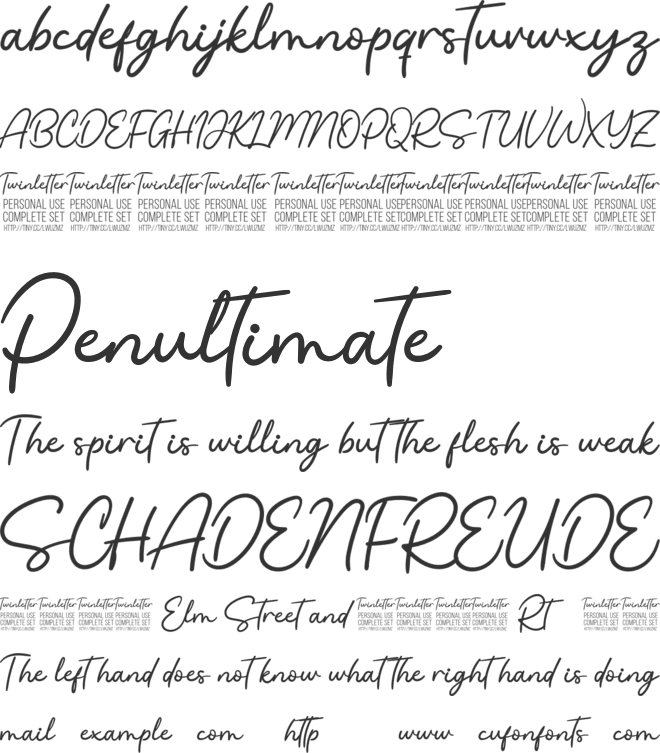 abcdefghijklmnopqrstuvwxyz
ABCDEFGHIJKLMNOPQRSTUVWXYZ
Twinletter Twinletter Twinletter Twinletter Twinletter Twinletter Twinletter Twinletter Twinletter Twinletter
PERSONAL USE PERSONAL USE PERSONAL USE PERSONAL USE PERSONAL USE PERSONAL USE PERSONAL USE PERSONAL USE PERSONAL USE PERSONAL USE
COMPLETE SET COMPLETE SET COMPLETE SET COMPLETE SET COMPLETE SET COMPLETE SET COMPLETE SET COMPLETE SET COMPLETE SET COMPLETE SET
HTTP://TINY.CC/LWUZMZ HTTP://TINY.CC/LWUZMZ HTTP://TINY.CC/LWUZMZ HTTP://TINY.CC/LWUZMZ HTTP://TINY.CC/LWUZMZ HTTP://TINY.CC/LWUZMZ HTTP://TINY.CC/LWUZMZ HTTP://TINY.CC/LWUZMZ HTTP://TINY.CC/LWUZMZ HTTP://TINY.CC/LWUZMZ
Penultimate
The spirit is willing but the flesh is weak
SCHADENFREUDE
Twinletter Twinletter Twinletter Twinletter Elm Street and Twinletter Twinletter Twinletter Twinletter Rt Twinletter Twinletter
PERSONAL USE PERSONAL USE PERSONAL USE PERSONAL USE PERSONAL USE PERSONAL USE PERSONAL USE PERSONAL USE PERSONAL USE PERSONAL USE
COMPLETE SET COMPLETE SET COMPLETE SET COMPLETE SET COMPLETE SET COMPLETE SET COMPLETE SET COMPLETE SET COMPLETE SET COMPLETE SET
HTTP://TINY.CC/LWUZMZ HTTP://TINY.CC/LWUZMZ HTTP://TINY.CC/LWUZMZ HTTP://TINY.CC/LWUZMZ HTTP://TINY.CC/LWUZMZ HTTP://TINY.CC/LWUZMZ HTTP://TINY.CC/LWUZMZ HTTP://TINY.CC/LWUZMZ HTTP://TINY.CC/LWUZMZ HTTP://TINY.CC/LWUZMZ
The left hand does not know what the right hand is doing
mail example com http www cufonfonts com